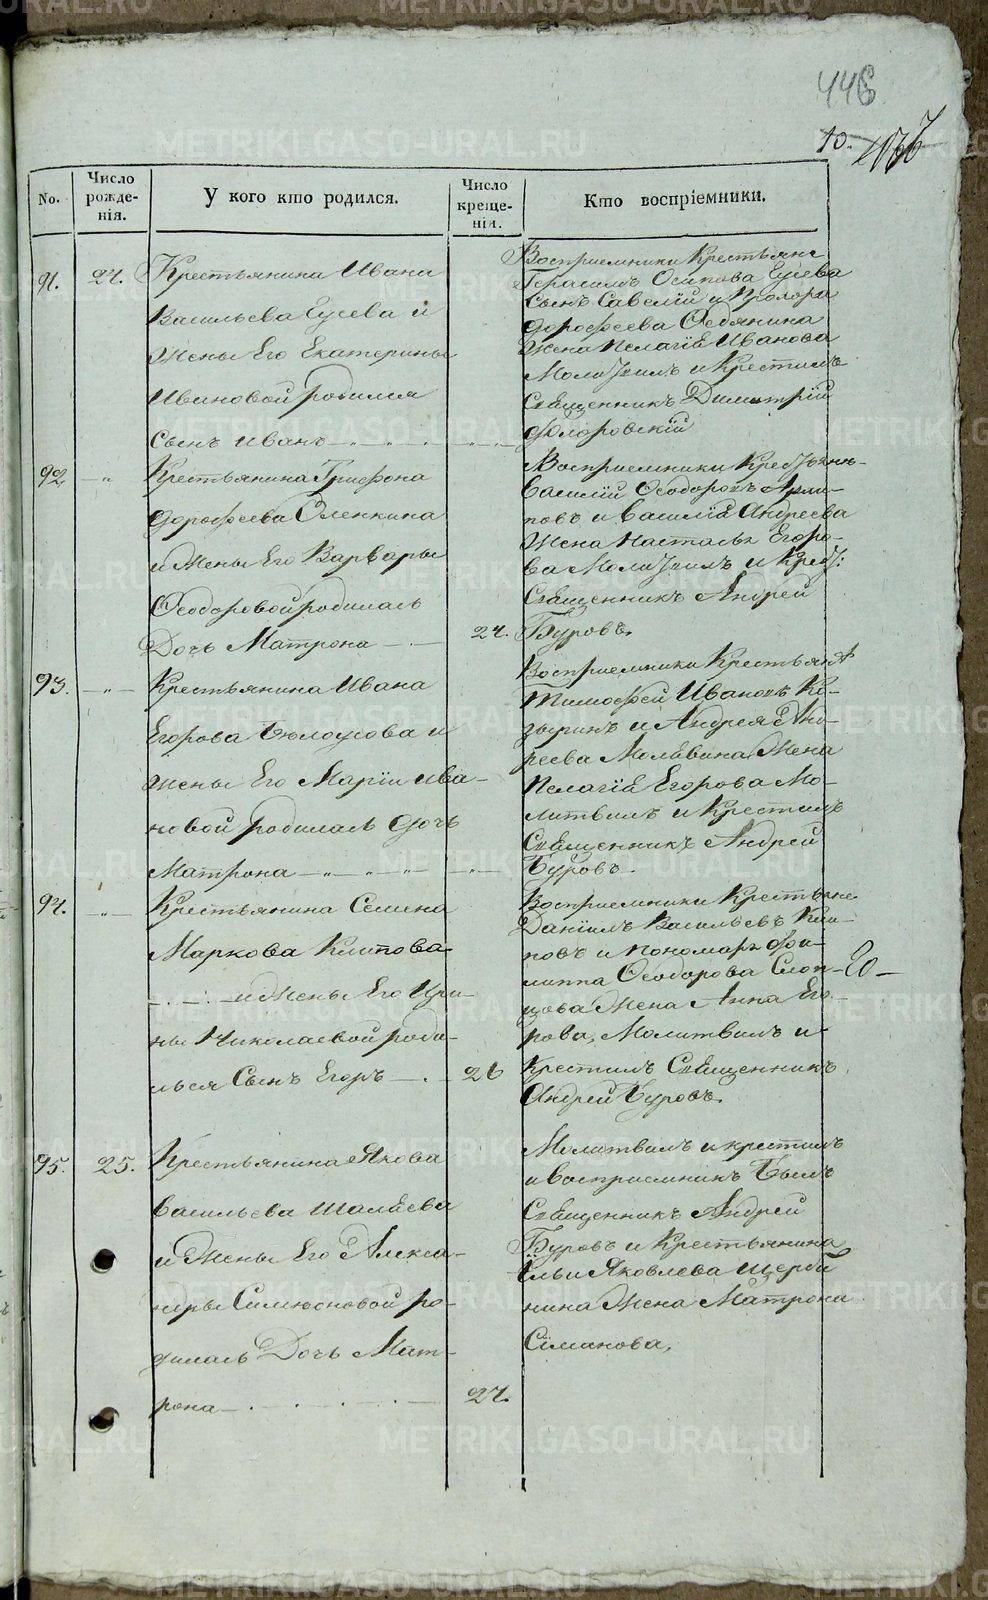 446
10.
No.
Число рожде-нія.
У кого кто родился.
Число креще-нія.
Кто воспріемники.
91.
24.
Крестьянина Ивана
Васильева Гусева и
Жены Его Екатерины
Ивановой родился
Сынъ Иванъ
Восприемники Крестьяне
Герасимъ Осипова Гусева
Сынъ Савелій и Прохора
Дорофеева
Жена Пелагія Иванова
Молитвилъ и Крестилъ
Священникъ Димитрій
Флоровскій
92.
Крестьянина Трифона
Дорофеева Оленкина
и Жены Его Варвары
Ѳеодоровой родилась
Дочь Матрона
24.
Восприемники
Василій Ѳеодоровъ
и Василія Андреева
Жена Настасья Егоро-
ва Молитвилъ и
Священникъ Андрей
Буровъ.
93.
Крестьянина Ивана
Егорова Бѣлоусова и
Жены Его Маріи Ива-
новой родилась Дочь
Матрона
Восприемники
Тимофей Ивановъ Ко-
зыринъ и Андрея Ано-
реева Жена
Пелагія Егорова Мо-
литвилъ и Крестилъ
Священникъ Андрей
Буровъ.
94.
Крестьянина Семена
Маркова Клипова
и Жены Его Ири-
ны Николаевой роди-
лься Сынъ Егоръ
26
Восприемники Крестьяне
Даніилъ Васильевъ Кли-
повъ и пономаря Фи-
липпа Ѳеодорова Слоп-
цова Жена Анна Его-
рова, Молитвилъ и
Крестилъ Священникъ
Андрей Буровъ.
95.
25.
Крестьянина Якова
Васильева Шалаева
и Жены Его Алекса-
ндры Симеоновой ро-
дилась Дочь Мат-
рона
27.
Молитвилъ и крестилъ
и восприемникъ былъ
Священникъ Андрей
Буровъ и Крестьянина
Ильи Яковлева Щерби
нина Жена Матрона
Симанова,
METRIKI.GASO-URAL.RU